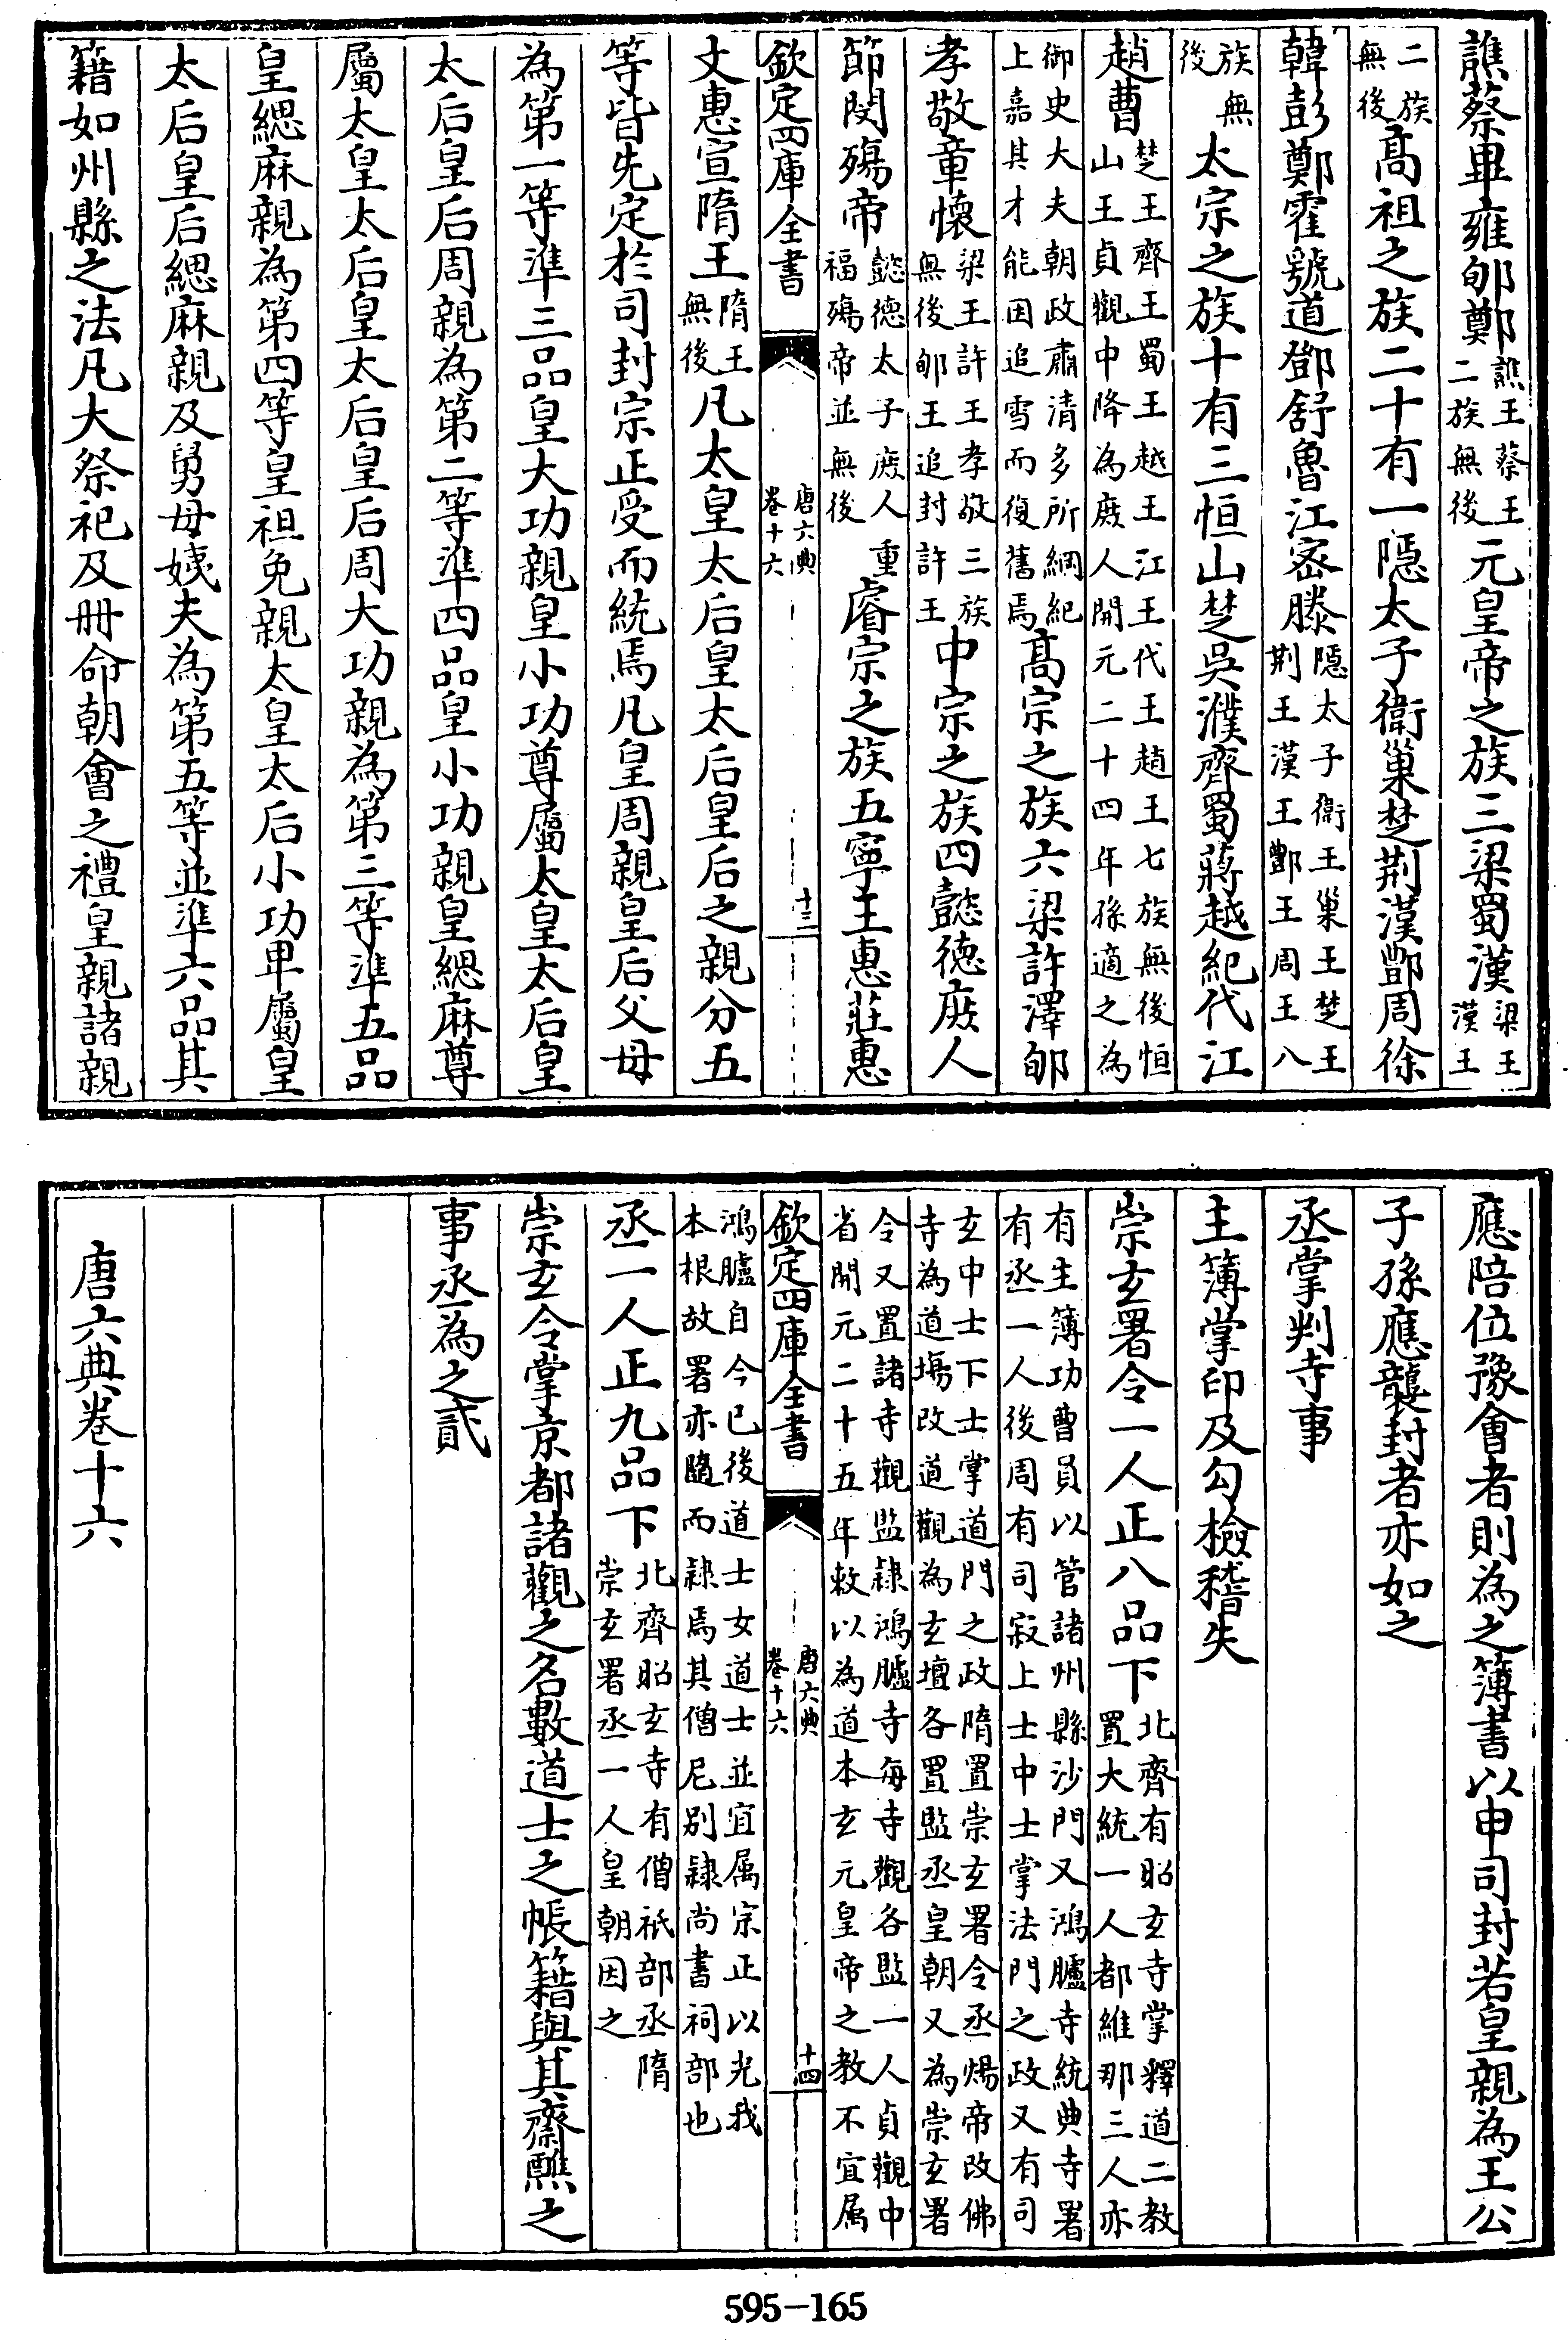 譙蔡畢雍郇鄭譙王蔡王二族無後元皇帝之族三梁蜀漢梁王漢王
二族無後高祖之族二十有一隱太子衛巢楚荆漢酆周徐
韓彭鄭霍虢道鄧舒魯江宻滕隱太子衛王巢王楚王荆王漢王酆王周王八
族無後太宗之族十有三恒山楚吳濮齊蜀蔣越紀代江
趙曹楚王齊王蜀王越王江王代王趙王七族無後恒山王貞觀中降為庶人開元二十四年孫適之為
御史大夫朝政肅清多所綱紀上嘉其才能因追雪而復舊焉髙宗之族六梁許澤郇
孝敬章懷梁王許王孝敬三族無後郇王追封許王中宗之族四懿德庶人
節閔殤帝懿德太子庶人重福殤帝並無後睿宗之族五寧王惠莊惠
欽定四庫全書 唐六典 卷十六 十三
文惠宣隋王隋王無後凡太皇太后皇太后皇后之親分五
等皆先定於司封宗正受而統焉凡皇周親皇后父母
為第一等準三品皇大功親皇小功尊屬太皇太后皇
太后皇后周親為第二等準四品皇小功親皇緦麻尊
屬太皇太后皇太后皇后周大功親為第三等準五品
皇緦麻親為第四等皇袒免親太皇太后小功卑屬皇
太后皇后緦麻親及舅母姨夫為第五等並準六品其
籍如州縣之法凡大祭祀及冊命朝會之禮皇親諸親
應陪位豫會者則為之簿書以申司封若皇親為王公
子孫應襲封者亦如之
丞掌判寺事
主簿掌印及勾檢稽失
崇玄署令一人正八品下北齊有昭玄寺掌釋道二教置大統一人都維那三人亦
有主簿功曹員以管諸州縣沙門又鴻臚寺統典寺署有丞一人後周有司寂上士中士掌法門之政又有司
玄中士下士掌道門之政隋置崇玄署令丞煬帝改佛寺為道場改道觀為玄壇各置監丞皇朝又為崇玄署
令又置諸寺觀監隷鴻臚寺每寺觀各監一人貞觀中省開元二十五年敕以為道本玄元皇帝之教不宜属
欽定四庫全書 唐六典 卷十六 十四
鴻臚自今已後道士女道士並宜属宗正以光我本根故署亦隨而隷焉其僧尼别隷尚書祠部也
丞一人正九品下北齊昭玄寺有僧祇部丞隋崇玄署丞一人皇朝因之
崇玄令掌京都諸觀之名數道士之帳籍與其齋醮之
事丞為之貳
唐六典卷十六
595-165